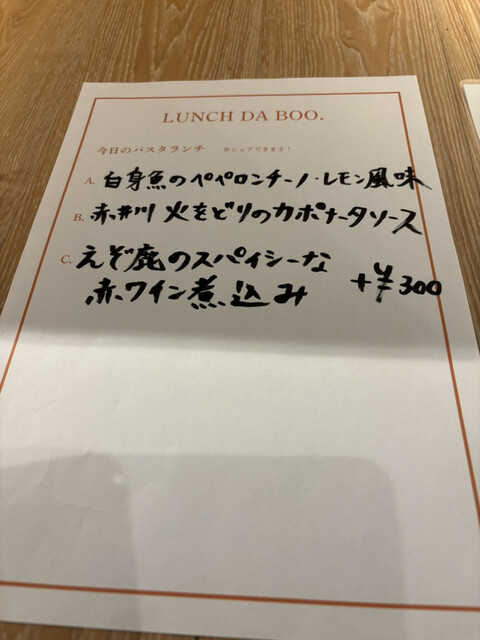 LUNCH DA BOO.
今日のパスタランチ ※シェアできます!
A. 白身魚のペペロンチーノ・レモン風味
B. 赤井川 火をどりのカポナータソース
C. えぞ鹿のスパイシーな
赤ワイン煮込み +¥300